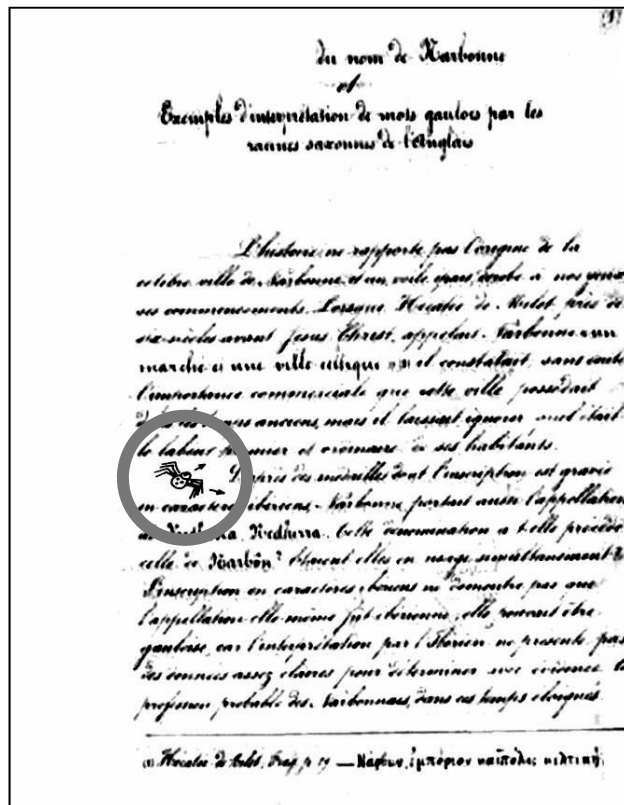 (1)
du nom de Narbonne
et
Exemples d'interprétation de mots gaulois par les
racines saxonnes de l'Anglais
L'histoire ne rapporte pas l'origine de la
célèbre ville de Narbonne, et un voile épais dérobe à nos yeux
ses commencements. Lorsque Hécatée de Milet, près de
six siècles avant Jésus Christ, appelait Narbonne « un
marché et une ville celtique » (1) il constatait, sans doute
l'importance commerciale que cette ville possédait
dans les temps anciens, mais il laissait ignorer quel était
le labeur premier et ordinaire de ses habitants.
D'après des médailles dont l'inscription est gravée
en caractères ibériens, Narbonne portait aussi l'appellation
de Nedhena, Nedherra. Cette dénomination a t-elle précédé
celle de Narbôn? Étaient elles en usage simultanément?
L'inscription en caractères ibériens ne démontre pas que
l'appellation elle-même fût ibérienne; elle pouvait être
gauloise, car l'interprétation par l'Ibérien ne présente pas
des données assez claires pour déterminer avec évidence la
profession probable des Narbonnais, dans ces temps éloignés.
(1) Hécatée de Milet, Frag. p. 19 — Νάρβων, ἐμπόριον καὶ πόλις κελτική